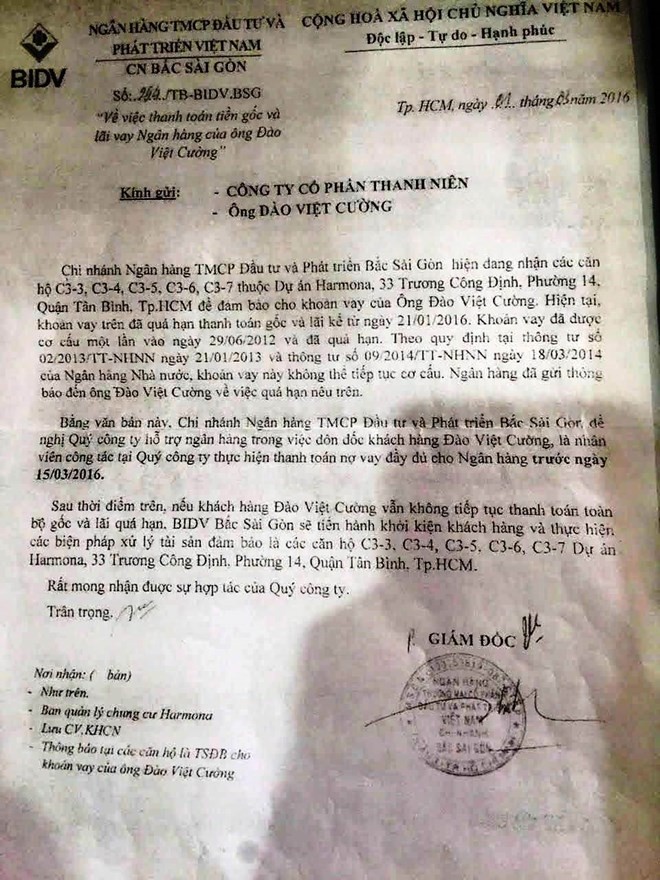 BIDV
NGÂN HÀNG TMCP ĐẦU TƯ VÀ
PHÁT TRIỂN VIỆT NAM
CN BẮC SÀI GÒN
CỘNG HOÀ XÃ HỘI CHỦ NGHĨA VIỆT NAM
Độc lập - Tự do - Hạnh phúc
Số: /TB-BIDV.BSG
Tp. HCM, ngày 01 tháng 03 năm 2016
"Về việc thanh toán tiền gốc và
lãi vay Ngân hàng của ông Đào
Việt Cường"
Kính gửi: - CÔNG TY CỔ PHẦN THANH NIÊN
- Ông ĐÀO VIỆT CƯỜNG
Chi nhánh Ngân hàng TMCP Đầu tư và Phát triển Bắc Sài Gòn hiện đang nhận các căn
hộ C3-3, C3-4, C3-5, C3-6, C3-7 thuộc Dự án Harmona, 33 Trương Công Định, Phường 14,
Quận Tân Bình, Tp.HCM để đảm bảo cho khoản vay của Ông Đào Việt Cường. Hiện tại,
khoản vay trên đã quá hạn thanh toán gốc và lãi kể từ ngày 21/01/2016. Khoản vay đã được
cơ cấu một lần vào ngày 29/06/2012 và đã quá hạn. Theo quy định tại thông tư số
02/2013/TT-NHNN ngày 21/01/2013 và thông tư số 09/2014/TT-NHNN ngày 18/03/2014
của Ngân hàng Nhà nước, khoản vay này không thể tiếp tục cơ cấu. Ngân hàng đã gửi thông
báo đến ông Đào Việt Cường về việc quá hạn nêu trên.
Bằng văn bản này, Chi nhánh Ngân hàng TMCP Đầu tư và Phát triển Bắc Sài Gòn, đề
nghị Quý công ty hỗ trợ ngân hàng trong việc đôn đốc khách hàng Đào Việt Cường, là nhân
viên công tác tại Quý công ty thực hiện thanh toán nợ vay đầy đủ cho Ngân hàng trước ngày
15/03/2016.
Sau thời điểm trên, nếu khách hàng Đào Việt Cường vẫn không tiếp tục thanh toán toàn
bộ gốc và lãi quá hạn. BIDV Bắc Sài Gòn sẽ tiến hành khởi kiện khách hàng và thực hiện
các biện pháp xử lý tài sản đảm bảo là các căn hộ C3-3, C3-4, C3-5, C3-6, C3-7 Dự án
Harmona, 33 Trương Công Định, Phường 14, Quận Tân Bình, Tp.HCM.
Rất mong nhận được sự hợp tác của Quý công ty.
Trân trọng.
GIÁM ĐỐC
NGÂN HÀNG
THƯƠNG MẠI CỔ PHẦN
ĐẦU TƯ VÀ PHÁT TRIỂN
VIỆT NAM
CHI NHÁNH
BẮC SÀI GÒN
Nơi nhận: ( bản)
- Như trên.
- Ban quản lý chung cư Harmona
- Lưu CV.KHCN
- Thông báo tại các căn hộ là TSĐB cho
khoản vay của ông Đào Việt Cường